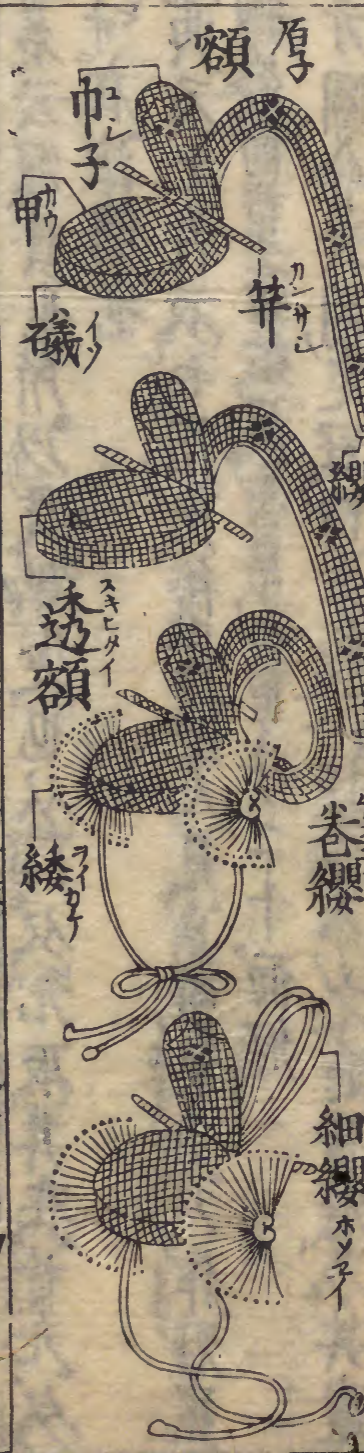 厚額
巾子
コジ
甲
カウ
礒
イソ
笄
カンサシ
纓
透額
スキヒタイ
巻纓
緌
ヲイカケ
細纓
ホソエイ